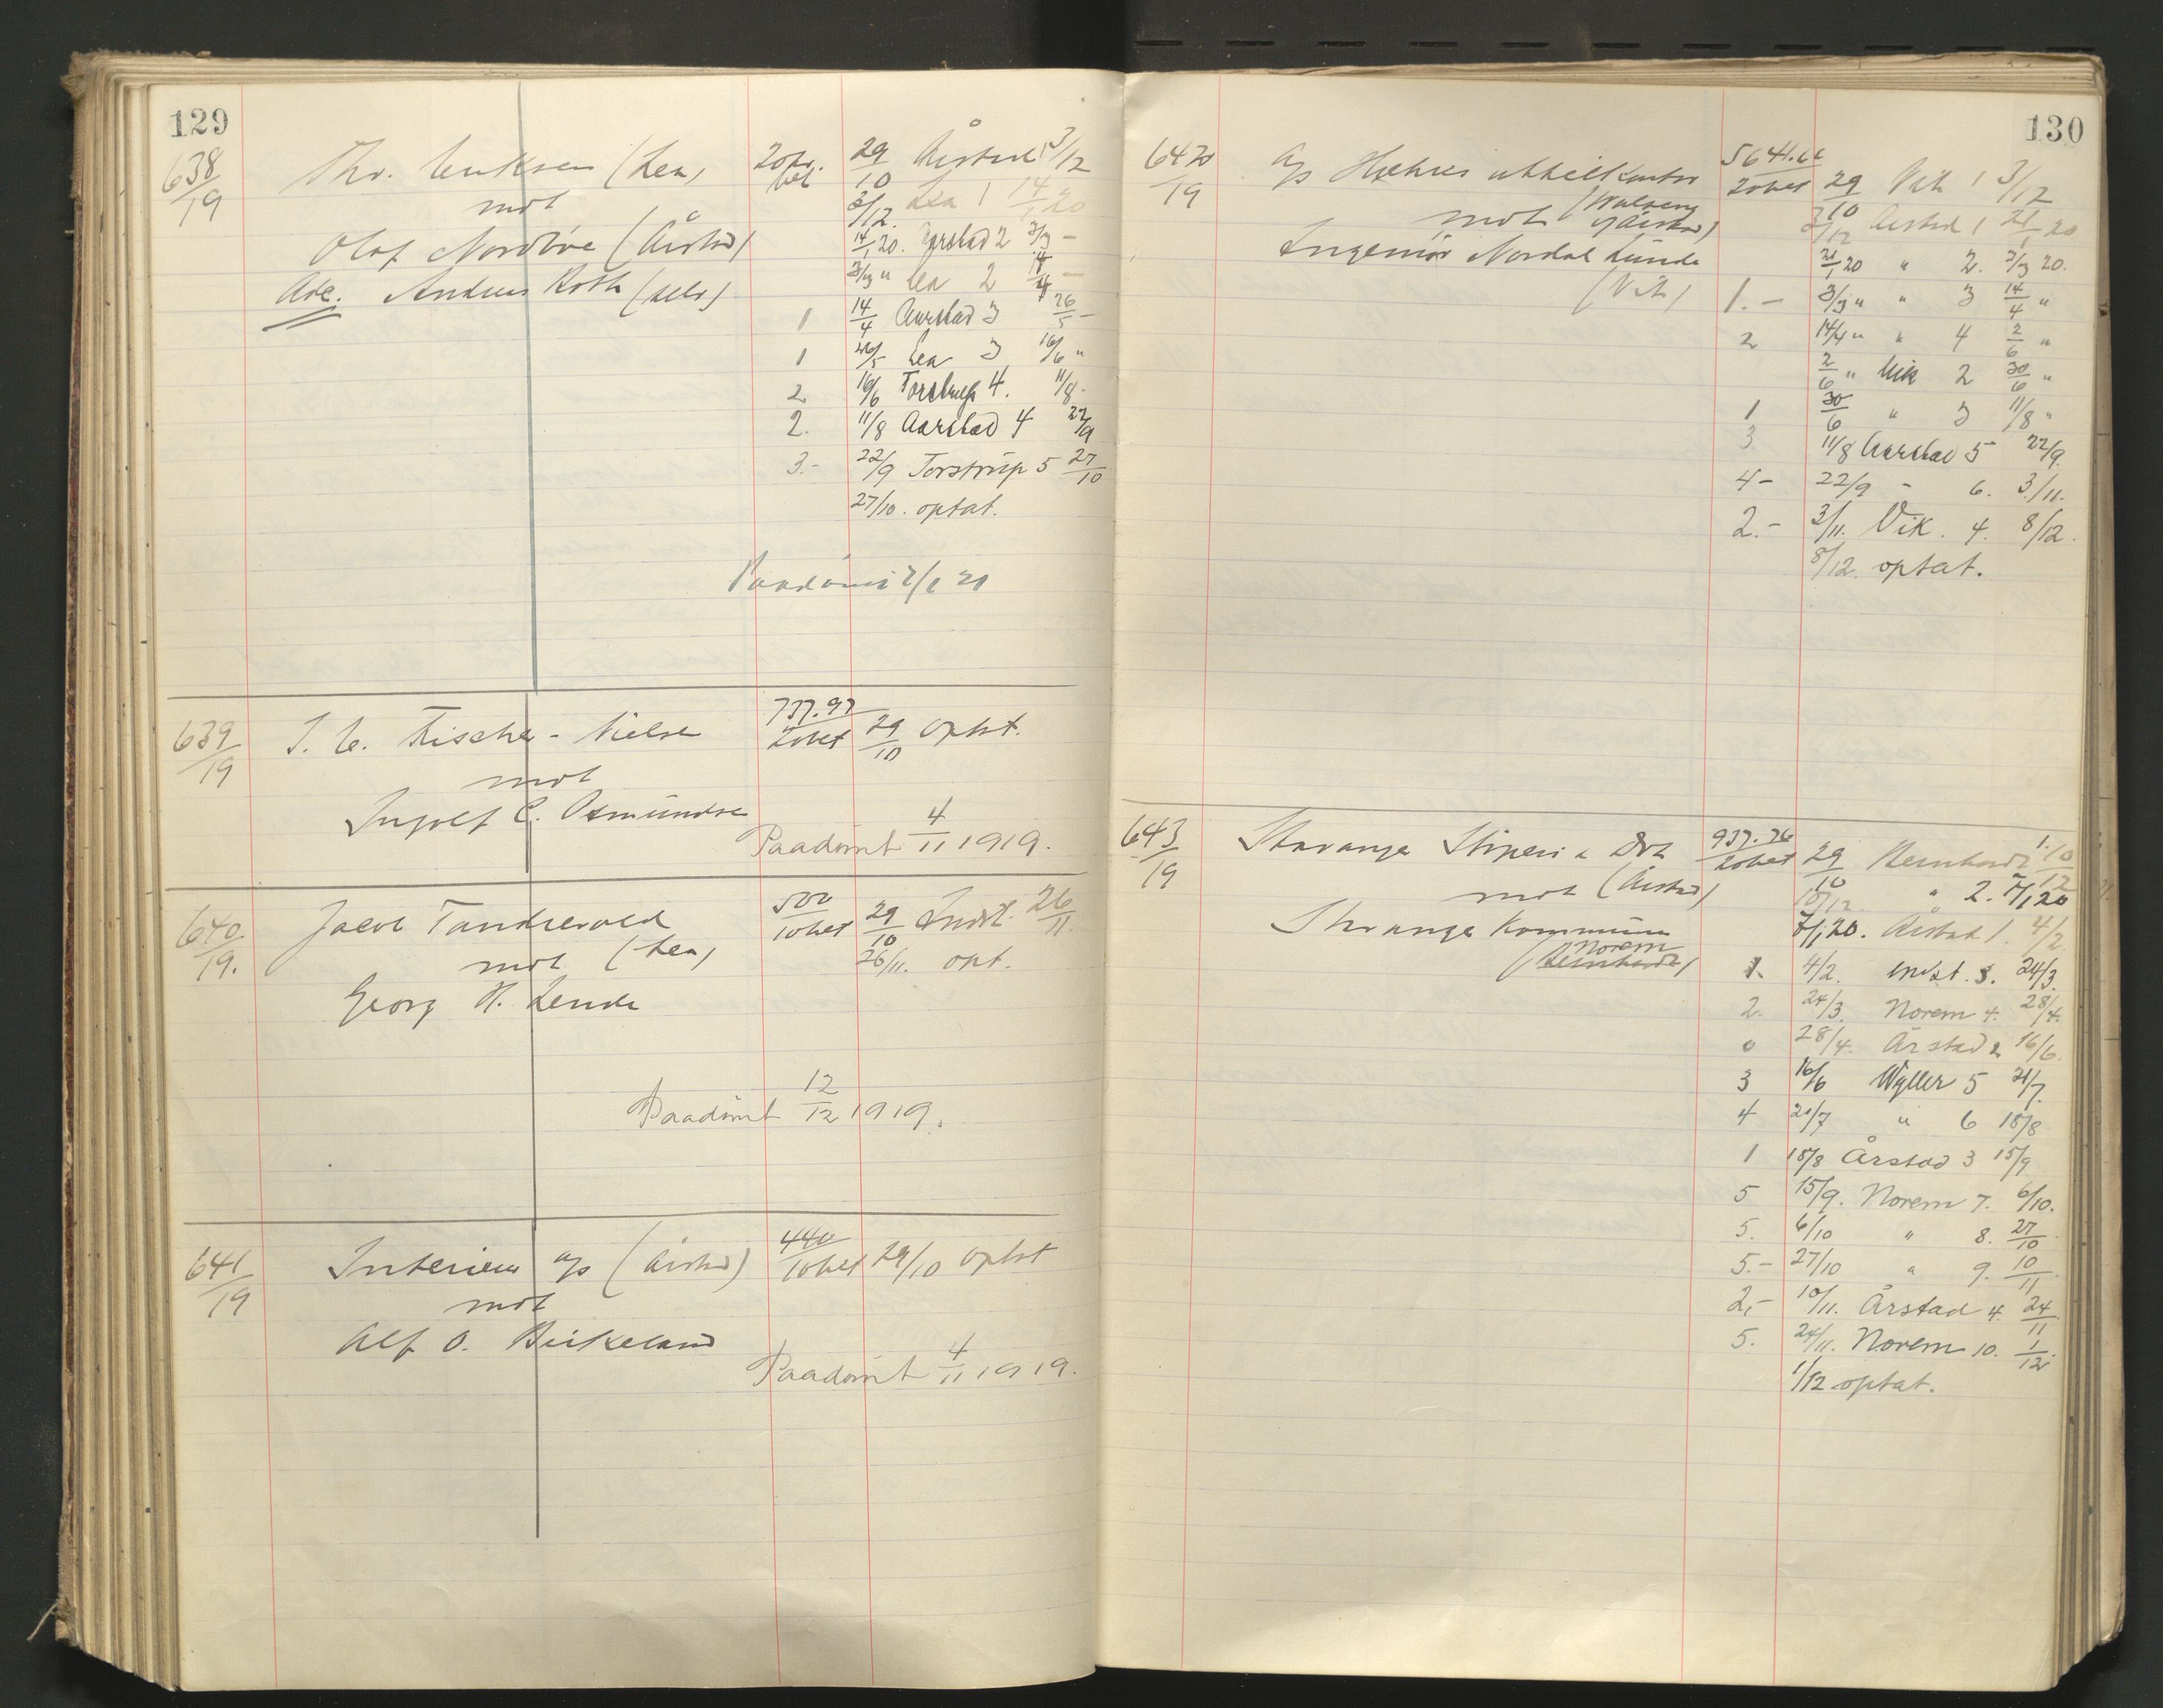 129
638/19 Thv. Eriksen (Lea) 20kr. bet 29/10 Årstad 1 3/12
mot 3/12 Lea 1 14/1 20
Olaf Nordbøe (Årstad) 14/1 20. Årstad 2 3/3 —
Adc. Andreas Roth (selv) 3/3 " Lea 2 14/4 —
1 14/4 Aarstad 3 26/5 —
1 26/5 Lea 3 16/6 "
2 16/6 Torstrup 4. 11/8 -
2. 11/8 Aarstad 4 22/9
3.- 22/9 Torstrup 5 27/10
27/10. optat.
Paadømt 2/2 21
639/19 I. C. Fischer-Nielsen 737.97 20bet 29/10 Optat.
mot
Ingolf C. Osmundsen
Paadømt 4/11 1919.
640/19. Jacob Tandrevold 500 10bet 29/10 Indst. 26/11
mot (Lea) 26/11. opt.
Georg H. Lende
Paadømt 12/12 1919.
641/19 Interiør a/s (Årstad) 440 10bet 29/10 optat
mot
Alf O. Birkeland
Paadømt 4/11 1919.
130
642/19 A/s utstillkontor 5641.66 20bet 29/10 Vik 1 3/12
mot (Årstad) 3/12 Årstad 1 21/1 20
Ingeniør Nordal Lunde 21/1 20 " 2. 3/3 20.
(Vik) 1.- 3/3 " " 3 14/4 "
2 14/4 " " 4 2/6 "
2/6 " Vik 2 30/6 "
1 30/6 " 3 11/8 "
3 11/8 Aarstad 5 22/9.
4- 22/9 - 6. 3/11.
2.- 3/11. Vik. 4. 8/12.
8/12. optat.
643/19 Stavanger Støperi & Dok 937.76 20bet 29/10 Reinhardt 1. 10/12
mot (Årstad) 10/12 " 2. 7/1 20
Stavanger Kommune 7/1 20. Årstad 1. 4/2
(Norem Reinhardt) 1. 4/2. indst. 3. 24/3.
2. 24/3. Norem 4. 28/4.
0 28/4. Årstad 2 16/6.
3 16/6 Wyller 5 21/7.
4 21/7 " 6 18/8
1 18/8 Årstad 3 15/9
5 15/9. Norem 7. 6/10.
5. 6/10 " 8. 27/10
5.- 27/10 " 9. 10/11.
2,- 10/11. Årstad 4. 24/11
5. 24/11. Norem 10. 1/12.
1/12 optat.